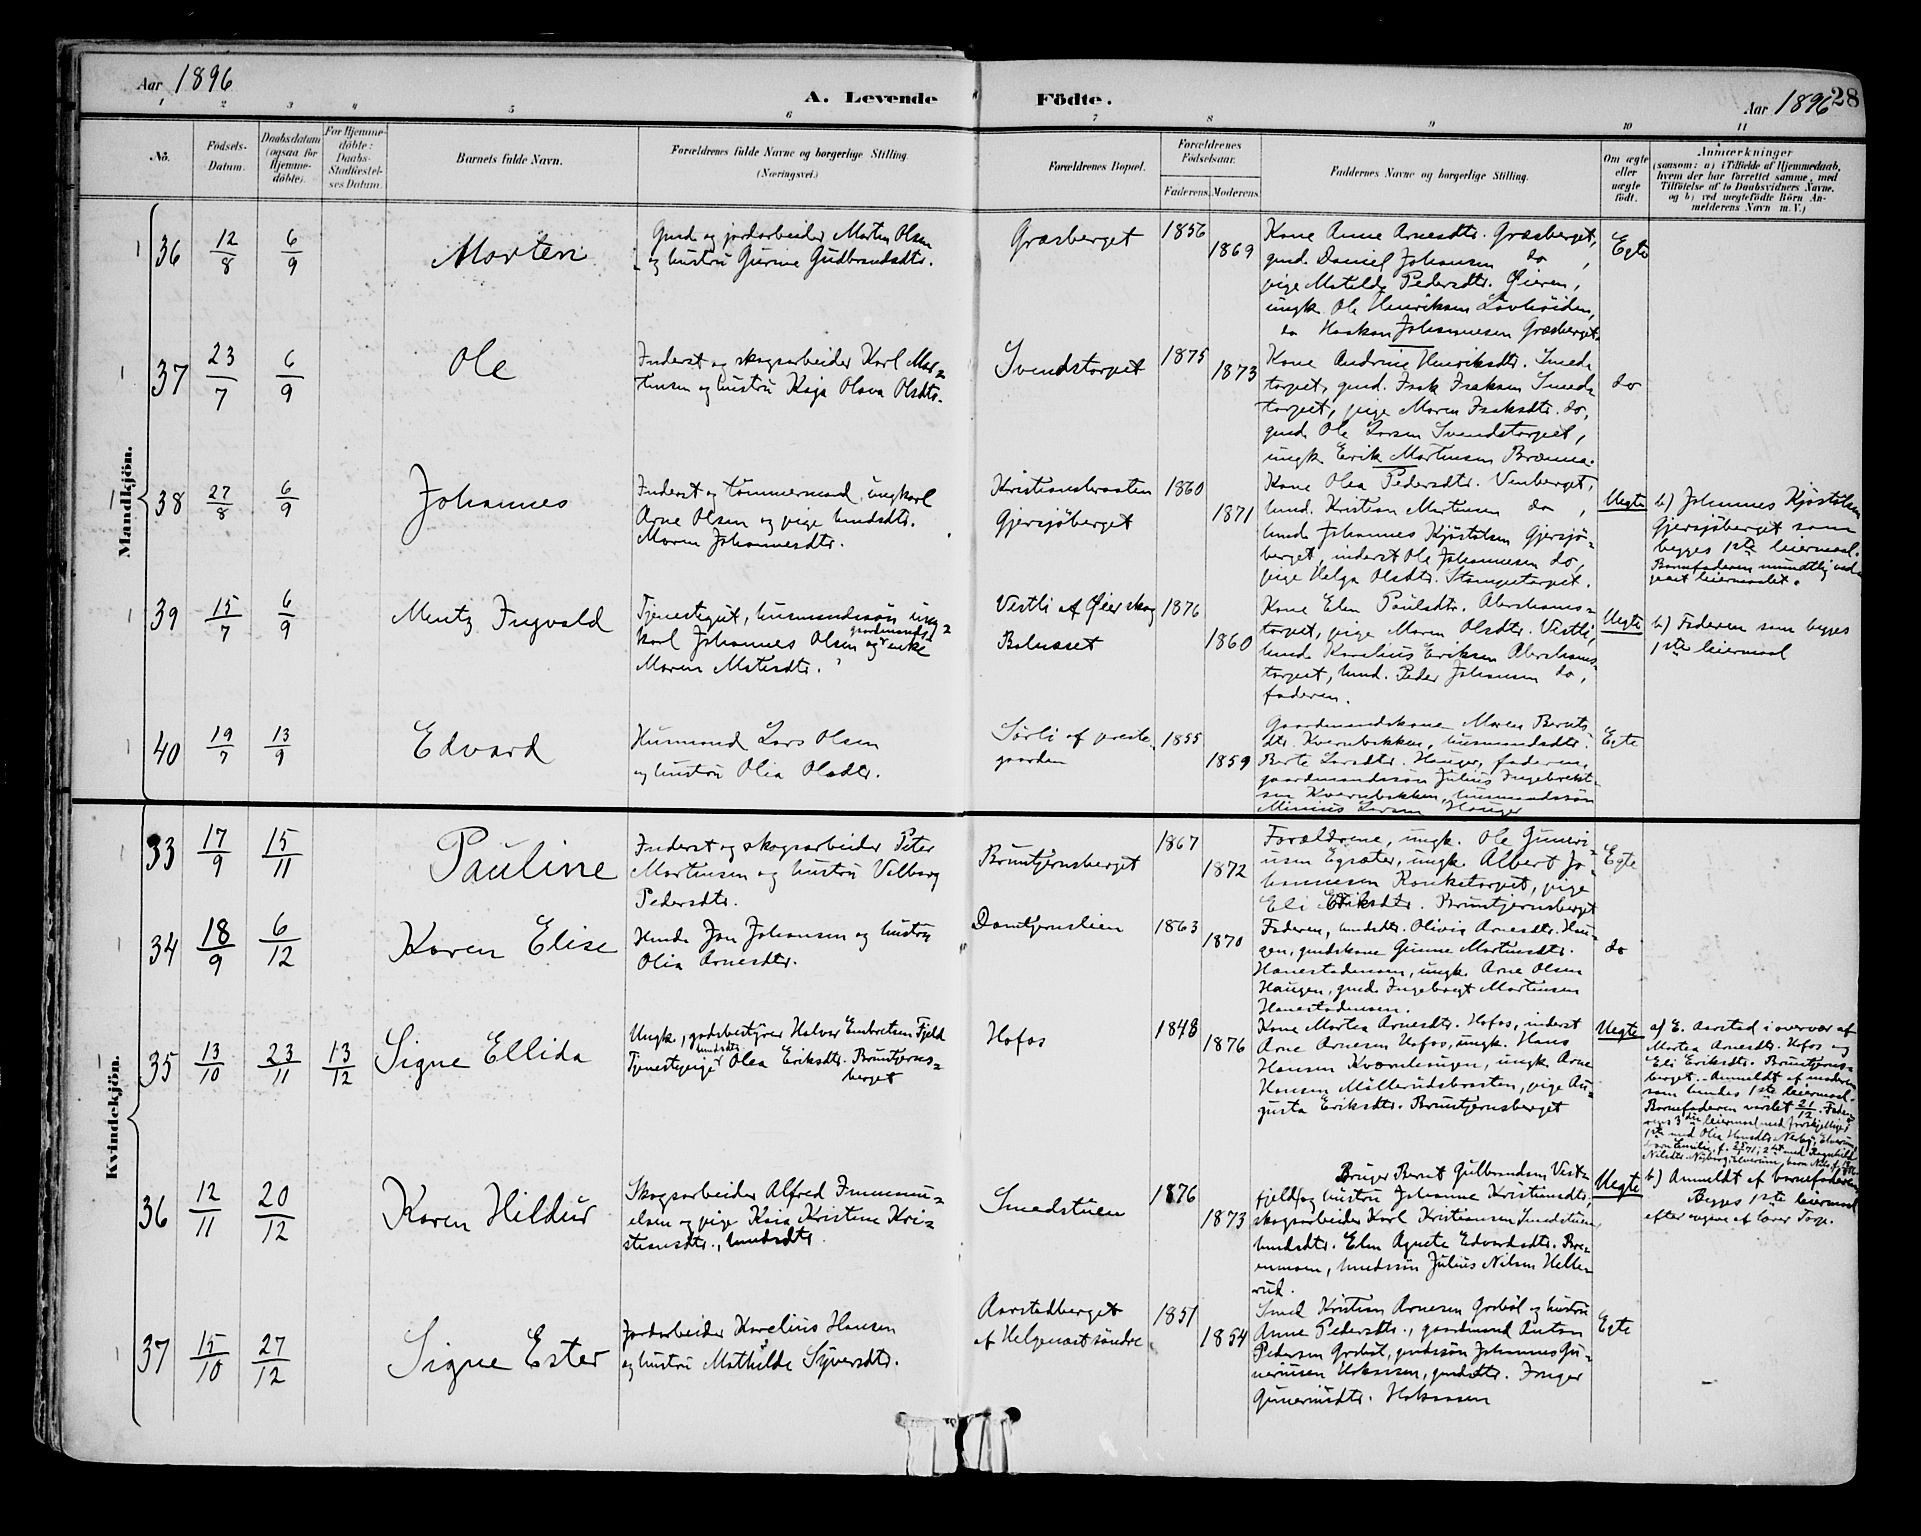 Aar 1896
A. Levende Födte.
Aar 1896
28
1 2 3 4 5 6 7 8 9 10 11
No.
Födsels-
Datum.
Daabsdatum
(ogsaa for
Hjemme-
döbte).
For Hjemme-
döbte:
Daabs-
Stadfæstel-
ses Datum.
Barnets fulde Navn.
Forældrenes fulde Navne og borgerlige Stilling.
(Næringsvei.)
Forældrenes Bopæl.
Forældrenes
Födselsaar.
Faderens. Moderens.
Faddernes Navne og borgerlige Stilling.
Om ægte
eller
uægte
födt.
Anmærkninger
(saasom: a) i Tilfælde af Hjemmedaab,
hvem der har forrettet samme, med
Tilföielse af to Daabsvidners Navne.
og b) ved uegtefödte Börn An-
melderens Navn m. V.)
Mandkjön.
36 12/8 6/9
Morten
Gmd og jordarbeider Morten Olsen
og hustru Gurine Gudbrandsdtr.
Græsberget
1856
1869
Kone Anne Arnesdtr. Græsberget,
gmd. Daniel Johansen do,
pige Matilde Pedersdtr. Øieren,
ungk. Ole Henriksen Løvhøiden,
do Haakon Johannesen Græsberget.
Egte
37 23/7 6/9
Ole
Inderst og skogsarbeider Karl Mar-
tinsen og hustru Kaja Olava Olsdtr.
Svendstorpet
1875
1873
Kone Andrine Henriksdtr. Smeds-
torpet, gmd. Isak Isaksen Smeds-
torpet, pige Maren Isaksdtr. do,
gmd. Ole Larsen Svendstorpet,
ungk Erik Martinsen Brænna.
do
38 27/8 6/9
Johannes
Inderst og tømmermand, ungkarl
Arne Olsen og pige hmdsdtr.
Maren Johannesdtr.
Kristiansbraaten
Gjersjøberget
1860
1871
Kone Olea Pedersdtr. Venberget,
hmd. Kristian Martinsen do,
hmd. Johannes Kjøstolsen Gjersjø-
berget, inderst Ole Johannesen do,
pige Helga Olsdtr. Stampetorpet.
Uegte
b) Johannes Kjøstolsen
Gjersjøberget som
begges 1ste leiermaal.
Barnefaderen mundtlig ved-
gaaet leiermaalet.
39 15/7 6/9
Mentz Ingvald
Tjenestegut, husmandssøn ung-
karl Johannes Olsen og gaardmands enke
Maren Matisdtr.
Vestli af Øier skog
Balnaset
1876
1860
Kone Elen Paulsdtr. Abrahams-
torpet, pige Maren Olsdtr. Vestli,
hmd. Karelius Eriksen Abrahams-
torpet, hmd. Peder Johansen do,
faderen.
Uegte
b) Faderen som begges
1ste leiermaal
40 19/7 13/9
Edvard
Husmand Lars Olsen
og hustru Olia Olsdtr.
Sørli af preste-
gaarden
1855
1859
Gaardmandskone Maren Bernts-
dtr. Kvernbekken, husmandsdtr.
Berte Larsdtr. Hauger, faderen,
gaardmandssøn Julius Ingebrekt-
sen Kvernbekken, husmandssøn
Minius Larsen Hauger
Egte
Kvindekjön.
33 17/9 15/11
Pauline
Inderst og skogsarbeider Peter
Martinsen og hustru Valborg
Pedersdtr.
Bruntjernsberget
1867
1872
Forældrene, ungk. Ole Guneri-
usen Egsæter, ungk. Albert Jo-
hannesen Konkstorpet, pige
Eli Eriksdtr. Bruntjernsberget
Egte
34 18/9 6/12
Karen Elise
Hmd. Jan Johansen og hustru
Olia Arnesdtr.
Damtjernslien
1863
1870
Faderen, hmdsdtr. Olivia Arnesdtr. Hau-
gen, gmdskone Gunne Martinsdtr.
Hanestadmoen, ungk. Arne Olsen
Haugen, gmd. Ingebregt Martinsen
Hanestadmoen.
do
35 13/10 23/11 13/12
Signe Ellida
Ungk., godsbestyrer Halvor Embretsen Fjeld
Tjenestepige hmdsdtr. Olea Eriksdtr. Bruntjerns-
berget
Hofos
1848
1876
Kone Martea Arnesdtr. Hofos, inderst
Arne Arnesen Hofos, ungk. Hans
Hansen Kværnhaugen, ungk. Arne
Hansen Møllerudsbraaten, pige Au-
gusta Eriksdtr. Bruntjernsberget
Uegte
af E. Aarstad i overvær af
Martea Arnesdtr. Hofos og
Eli Eriksdtr. Bruntjerns-
berget. - Anmeldt af moderen
som hendes 1ste leiermaal.
Barnefaderen varslet 21/12. Fader-
ens 3die leiermaal med forskjellige
36 12/11 20/12
Karen Hildur
Skogsarbeider Alfred Immanu-
elsen og pige Kaia Kristine Kri-
stiansdtr., hmdsdtr.
Smedstuen
1876
1873
Bruger Bernt Gulbrandsen Vest-
fjeld og hustru Johanne Kristiansdtr,
skogsarbeider Karl Kristiansen Smedstuen
hmdsdtr. Elen Agnete Edvardsdtr. Bre-
enmoen, hmdssøn Julius Nilsen Helle-
rud.
Uegte
b) Anmeldt af barnefaderen.
Begges 1ste leiermaal
efter opgave af lærer Torp.
37 15/10 27/12
Signe Ester
Jordarbeider Karelius Hansen
og hustru Mathilde Syversdtr.
Aarstadberget
af Helgenaset søndre
1851
1854
Smed Kristian Arnesen Grøbøl og hustru
Anne Pedersdtr., gaardmand Anton
Pedersen Grøbøl, gmdssøn Johannes Gu-
neriusen Hokaasen, gmdsdtr. Inger
Guneriusdtr. Hokaasen
Egte